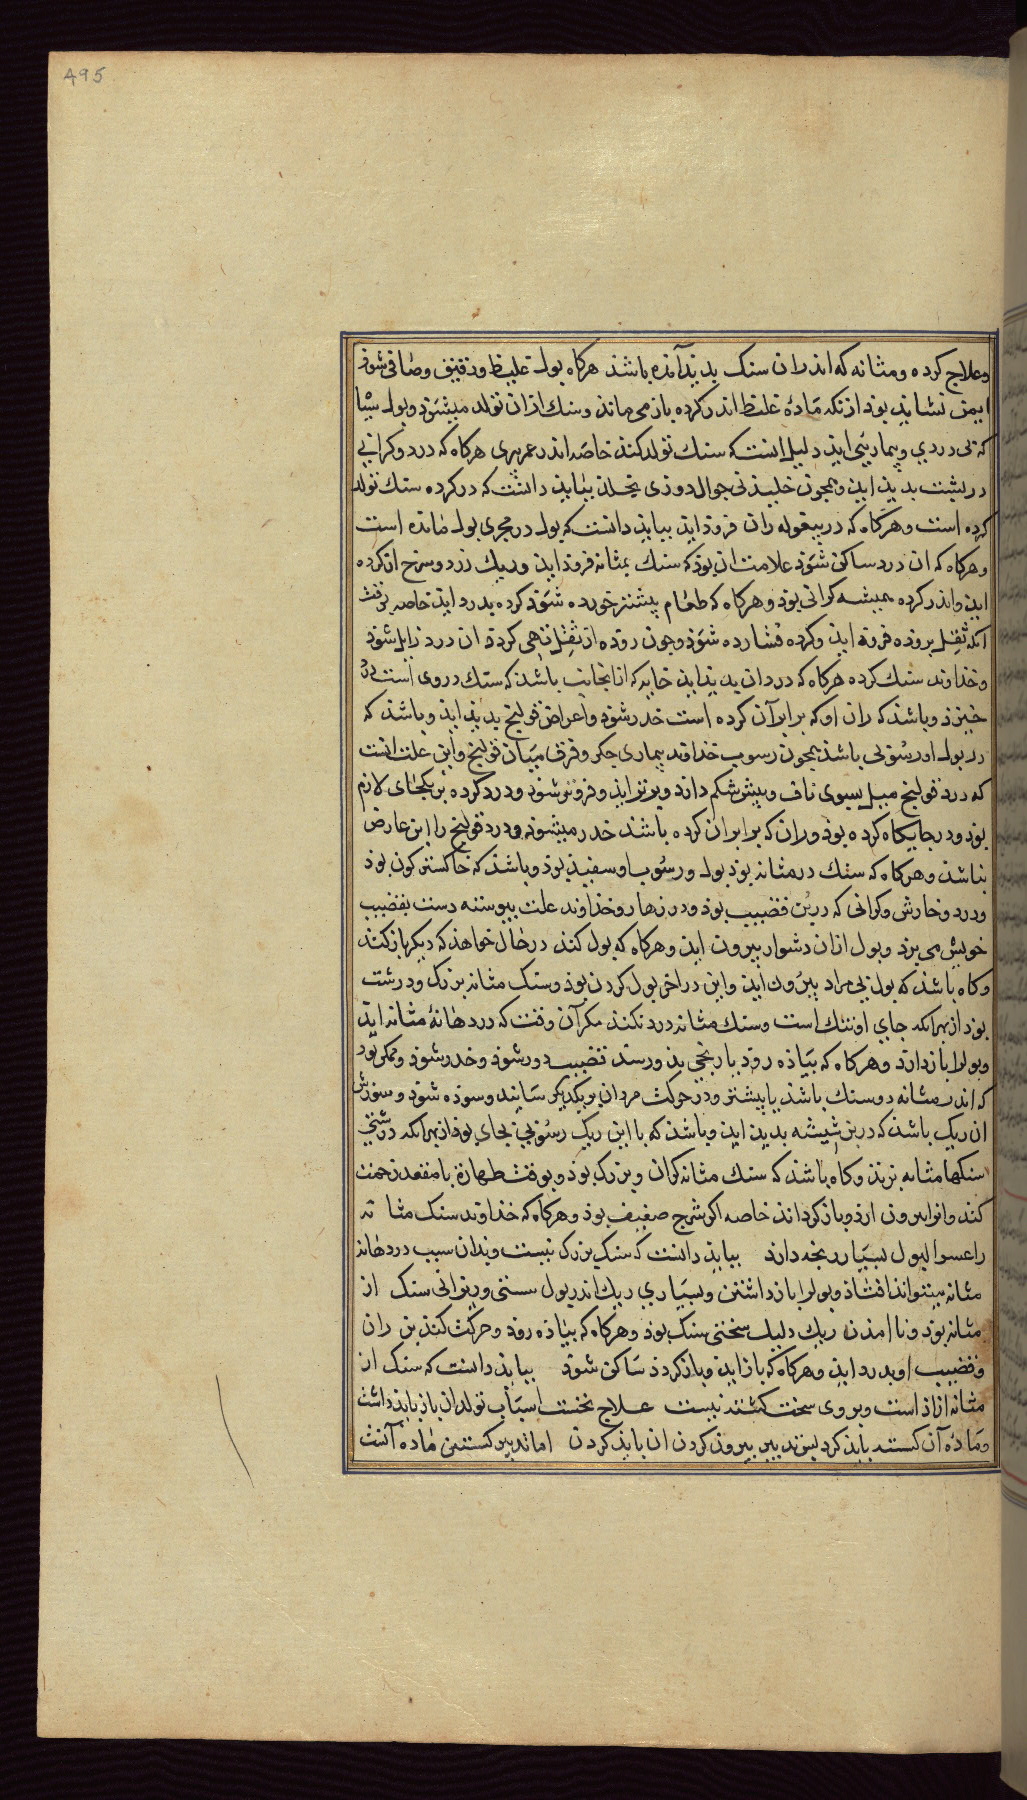 495
وعلاج کرده ومثانه که اندران سنک بدیذ آمذه باشذ هرکاه بول غلیظ ورقیق وصافی شوذ
ایمن نشایذ بوذ ازنکه مادهٔ غلظ اندر کرده بازمی‌ماند وسنک ازان تولد میشوذ وبول
که بی دردی وبیماریی ایذ دلیل انست که سنک تولد کند خاصه اندر عمر پیری هرکاه که درد وکرانی
در پشت بدیذ ایذ وهمجون خلیذنی جوال دوزی یخلد ببایذ دانست که در کرده سنک تولد
کرده است وهرکاه که در بیغوله ران فروذ ایذ ببایذ دانست که بول در مجری بول مانده است
وهرکاه که ان درد ساکن شوذ علامت ان بوذ که سنک بمثانه فروذ ایذ وریک زرد وسرخ از کرده
ایذ واندر کرده همیشه کرانی بوذ وهرکاه که طعام بیشتر خورده شوذ کرده بدرد ایذ خاصه
انکه ثفل بروده فروذ ایذ وکرده فشارده شوذ وجون روده از ثفل تهی کردذ ان درد زایل شوذ
وخذاوند سنک کرده هرکاه که درد ان بدیذ ایذ خایه که ازانجانب باشذ که سنک در وی است
خیزذ وباشذ که ران او که برابر آن کرده است خدر شوذ واعراض قولنج بدیذ ایذ وباشذ که
در بول او رسوبی باشذ همجون رسوب خذاوند بیماری جکر وفرق میان قولنج واین علت انست
که درد قولنج میل بسوی ناف وبیش شکم دارذ وبرتر ایذ وفروتر شوذ ودرد کرده بر یکجای لازم
بوذ ودر جایکاه کرده بوذ وران که برابر ان کرده باشذ خدر میشوذ ودرد قولنج را این عارض
نباشذ وهرکاه که سنک در مثانه بوذ بول ورسوب او سفیذ بوذ وباشذ که خاکستر کون بوذ
ودرد وخارش وکرانی که در بن قضیب بوذ ودر زهار وخذاوند علت بیوسته دست بقضیب
خویش می برذ وبول ازان دشوار بیرون ایذ وهرکاه که بول کنذ در حال خواهذ که دیکر بار کنذ
وکاه باشذ که بول بی مراد بیرون ایذ واین در اخر بول کردن بوذ وسنک مثانه بزرک ودرشت
بوذ از بهر انکه جای او تنک است وسنک مثانه درد نکند مکر آن وقت که در دهانهٔ مثانه ایذ
وبول را بازدارذ وهرکاه که بیاده روذ یا رنجی بذو رسذ قضیب شوذ وخدر شوذ وممکن بوذ
که اندر مثانه دو سنک باشذ یا بیشتر ودر حرکت مردان بر یکدیکر سایند وسوذه شوذ
ان ریک باشذ که در بن شیشه بدیذ ایذ وباشذ که با این ریک رسوبی بوذ از بهر انکه درشتی
سنکها مثانه برنذ وکاه باشذ که سنک مثانه کران وبزرک بوذ وبوقت طهارة با مقعد زحمت
کند واو را بیرون ارذ وباز کرداند خاصه اکر شرج ضعیف بوذ وهرکاه که خذاوند سنک مثانه
را عسر البول بسیار رنجه دارد ببایذ دانست که سنک بزرک نیست وبدان سبب در دهانه
مثانه میتواند افتاذ وبول را بازداشتن وبسیاری ریک اندر بول سستی سنک از
مثانه بوذ ونا امذن ریک دلیل سختی سنک بوذ وهرکاه که بیاذه روذ وحرکت کند بن ران
وقضیب او بدرد ایذ وهرکاه که باز ایذ وباز کردذ ساکن شوذ ببایذ دانست که سنک از
مثانه ازاذ است وبر وی سخت کشته نیست علاج نخست اسباب تولد ان باز بایذ داشت
وماده آن کسسته بایذ کرد بس تدبیر بیرون کردن ان بایذ کردن اما تدبیر کسستن ماده آنست